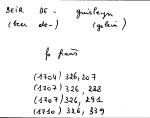 BEIR DE- guislayn
(beer de-) (gelein)
fo frans
(1704) 326, 207
(1707) 326, 228
(1707) 326, 291
(1710) 326, 339